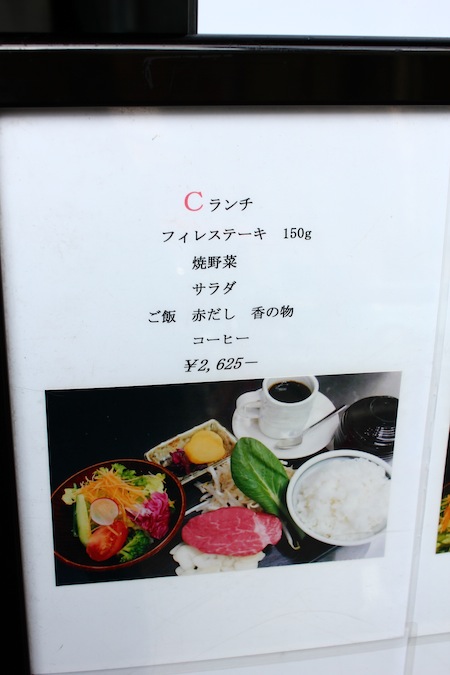 Cランチ
フィレステーキ 150g
焼野菜
サラダ
ご飯 赤だし 香の物
コーヒー
¥2,625−